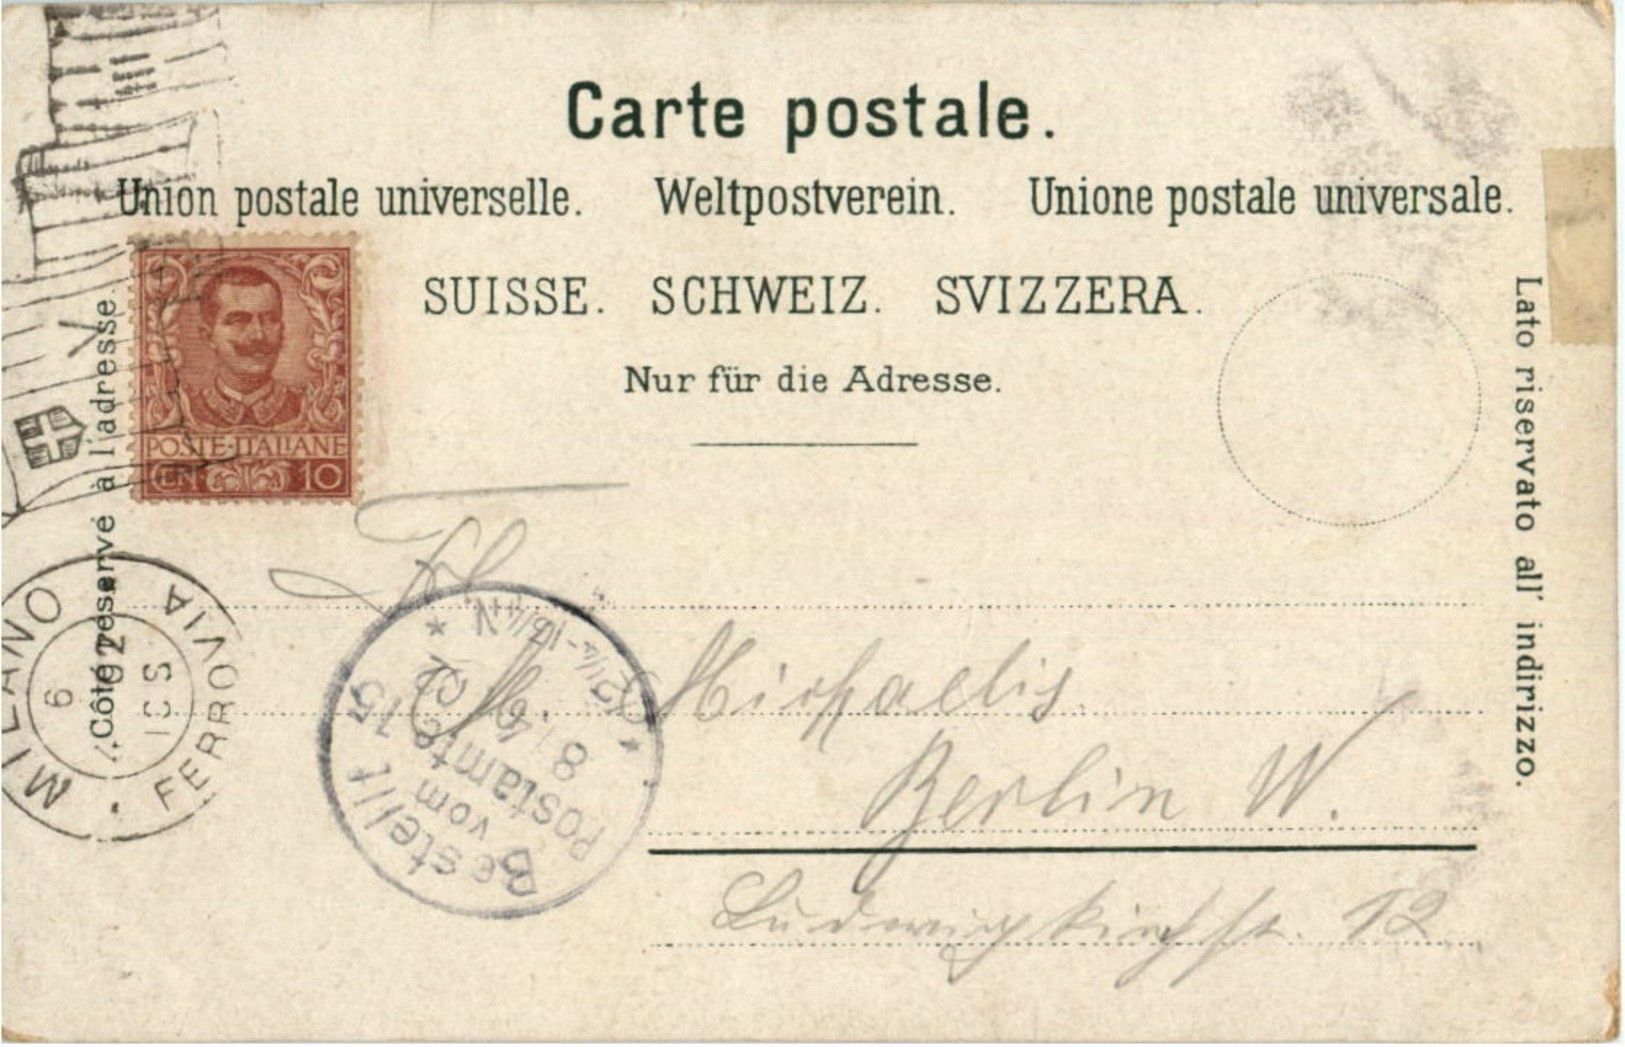 Carte postale.
Union postale universelle. Weltpostverein. Unione postale universale.
SUISSE. SCHWEIZ. SVIZZERA.
Nur für die Adresse.
Côté reservé à l'adresse.
Lato riservato all' indirizzo.
POSTE·ITALIANE
10
MILANO
FERROVIA
Bestellt
vom
Postamte 15
8 / 4
02
Frl.
M. Michaelis.
Berlin W.
Ludwigkirchstr. 12